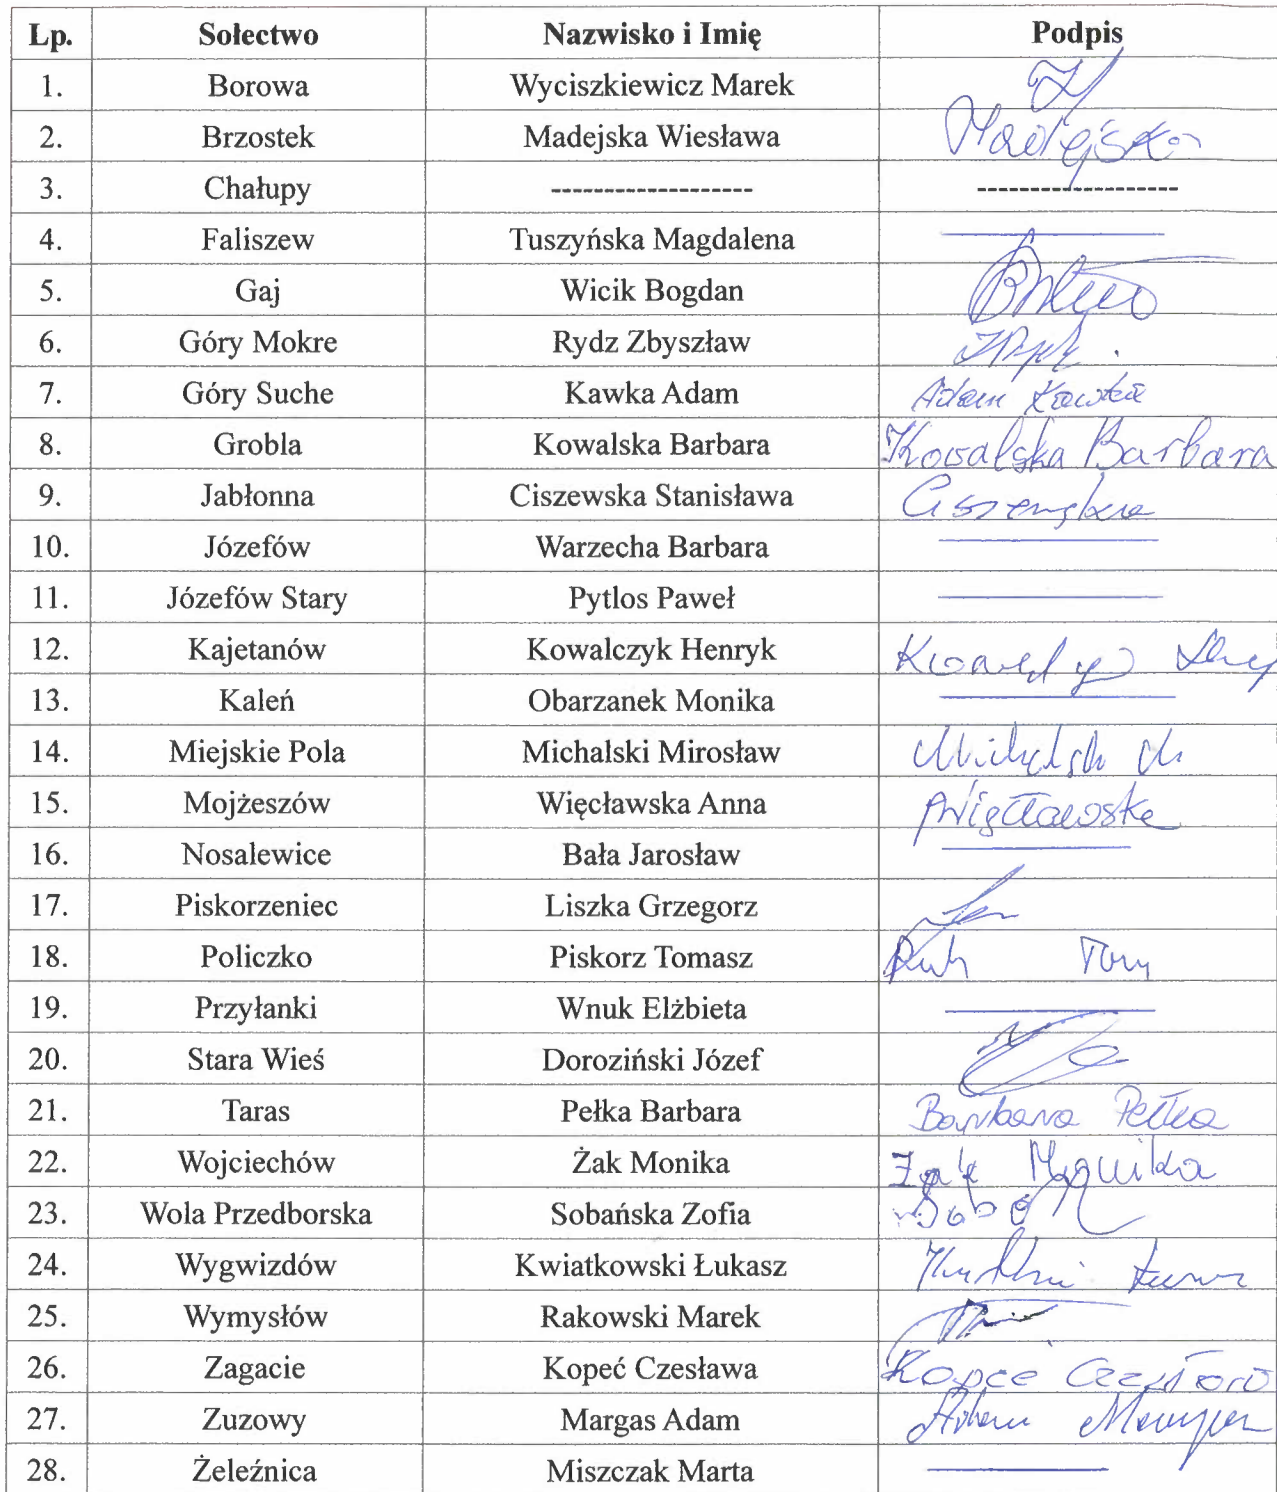 Lp. Sołectwo Nazwisko i Imię Podpis
1. Borowa Wyciszkiewicz Marek
2. Brzostek Madejska Wiesława Madejska
3. Chałupy ------------------- -------------------
4. Faliszew Tuszyńska Magdalena
5. Gaj Wicik Bogdan
6. Góry Mokre Rydz Zbyszław
7. Góry Suche Kawka Adam Adam Kawka
8. Grobla Kowalska Barbara Kowalska Barbara
9. Jabłonna Ciszewska Stanisława Ciszewska
10. Józefów Warzecha Barbara
11. Józefów Stary Pytlos Paweł
12. Kajetanów Kowalczyk Henryk
13. Kaleń Obarzanek Monika
14. Miejskie Pola Michalski Mirosław
15. Mojżeszów Więcławska Anna
16. Nosalewice Bała Jarosław
17. Piskorzeniec Liszka Grzegorz
18. Policzko Piskorz Tomasz
19. Przyłanki Wnuk Elżbieta
20. Stara Wieś Doroziński Józef
21. Taras Pełka Barbara Barbara Pełka
22. Wojciechów Żak Monika Żak Monika
23. Wola Przedborska Sobańska Zofia
24. Wygwizdów Kwiatkowski Łukasz
25. Wymysłów Rakowski Marek
26. Zagacie Kopeć Czesława Kopeć
27. Zuzowy Margas Adam Adam
28. Żeleźnica Miszczak Marta